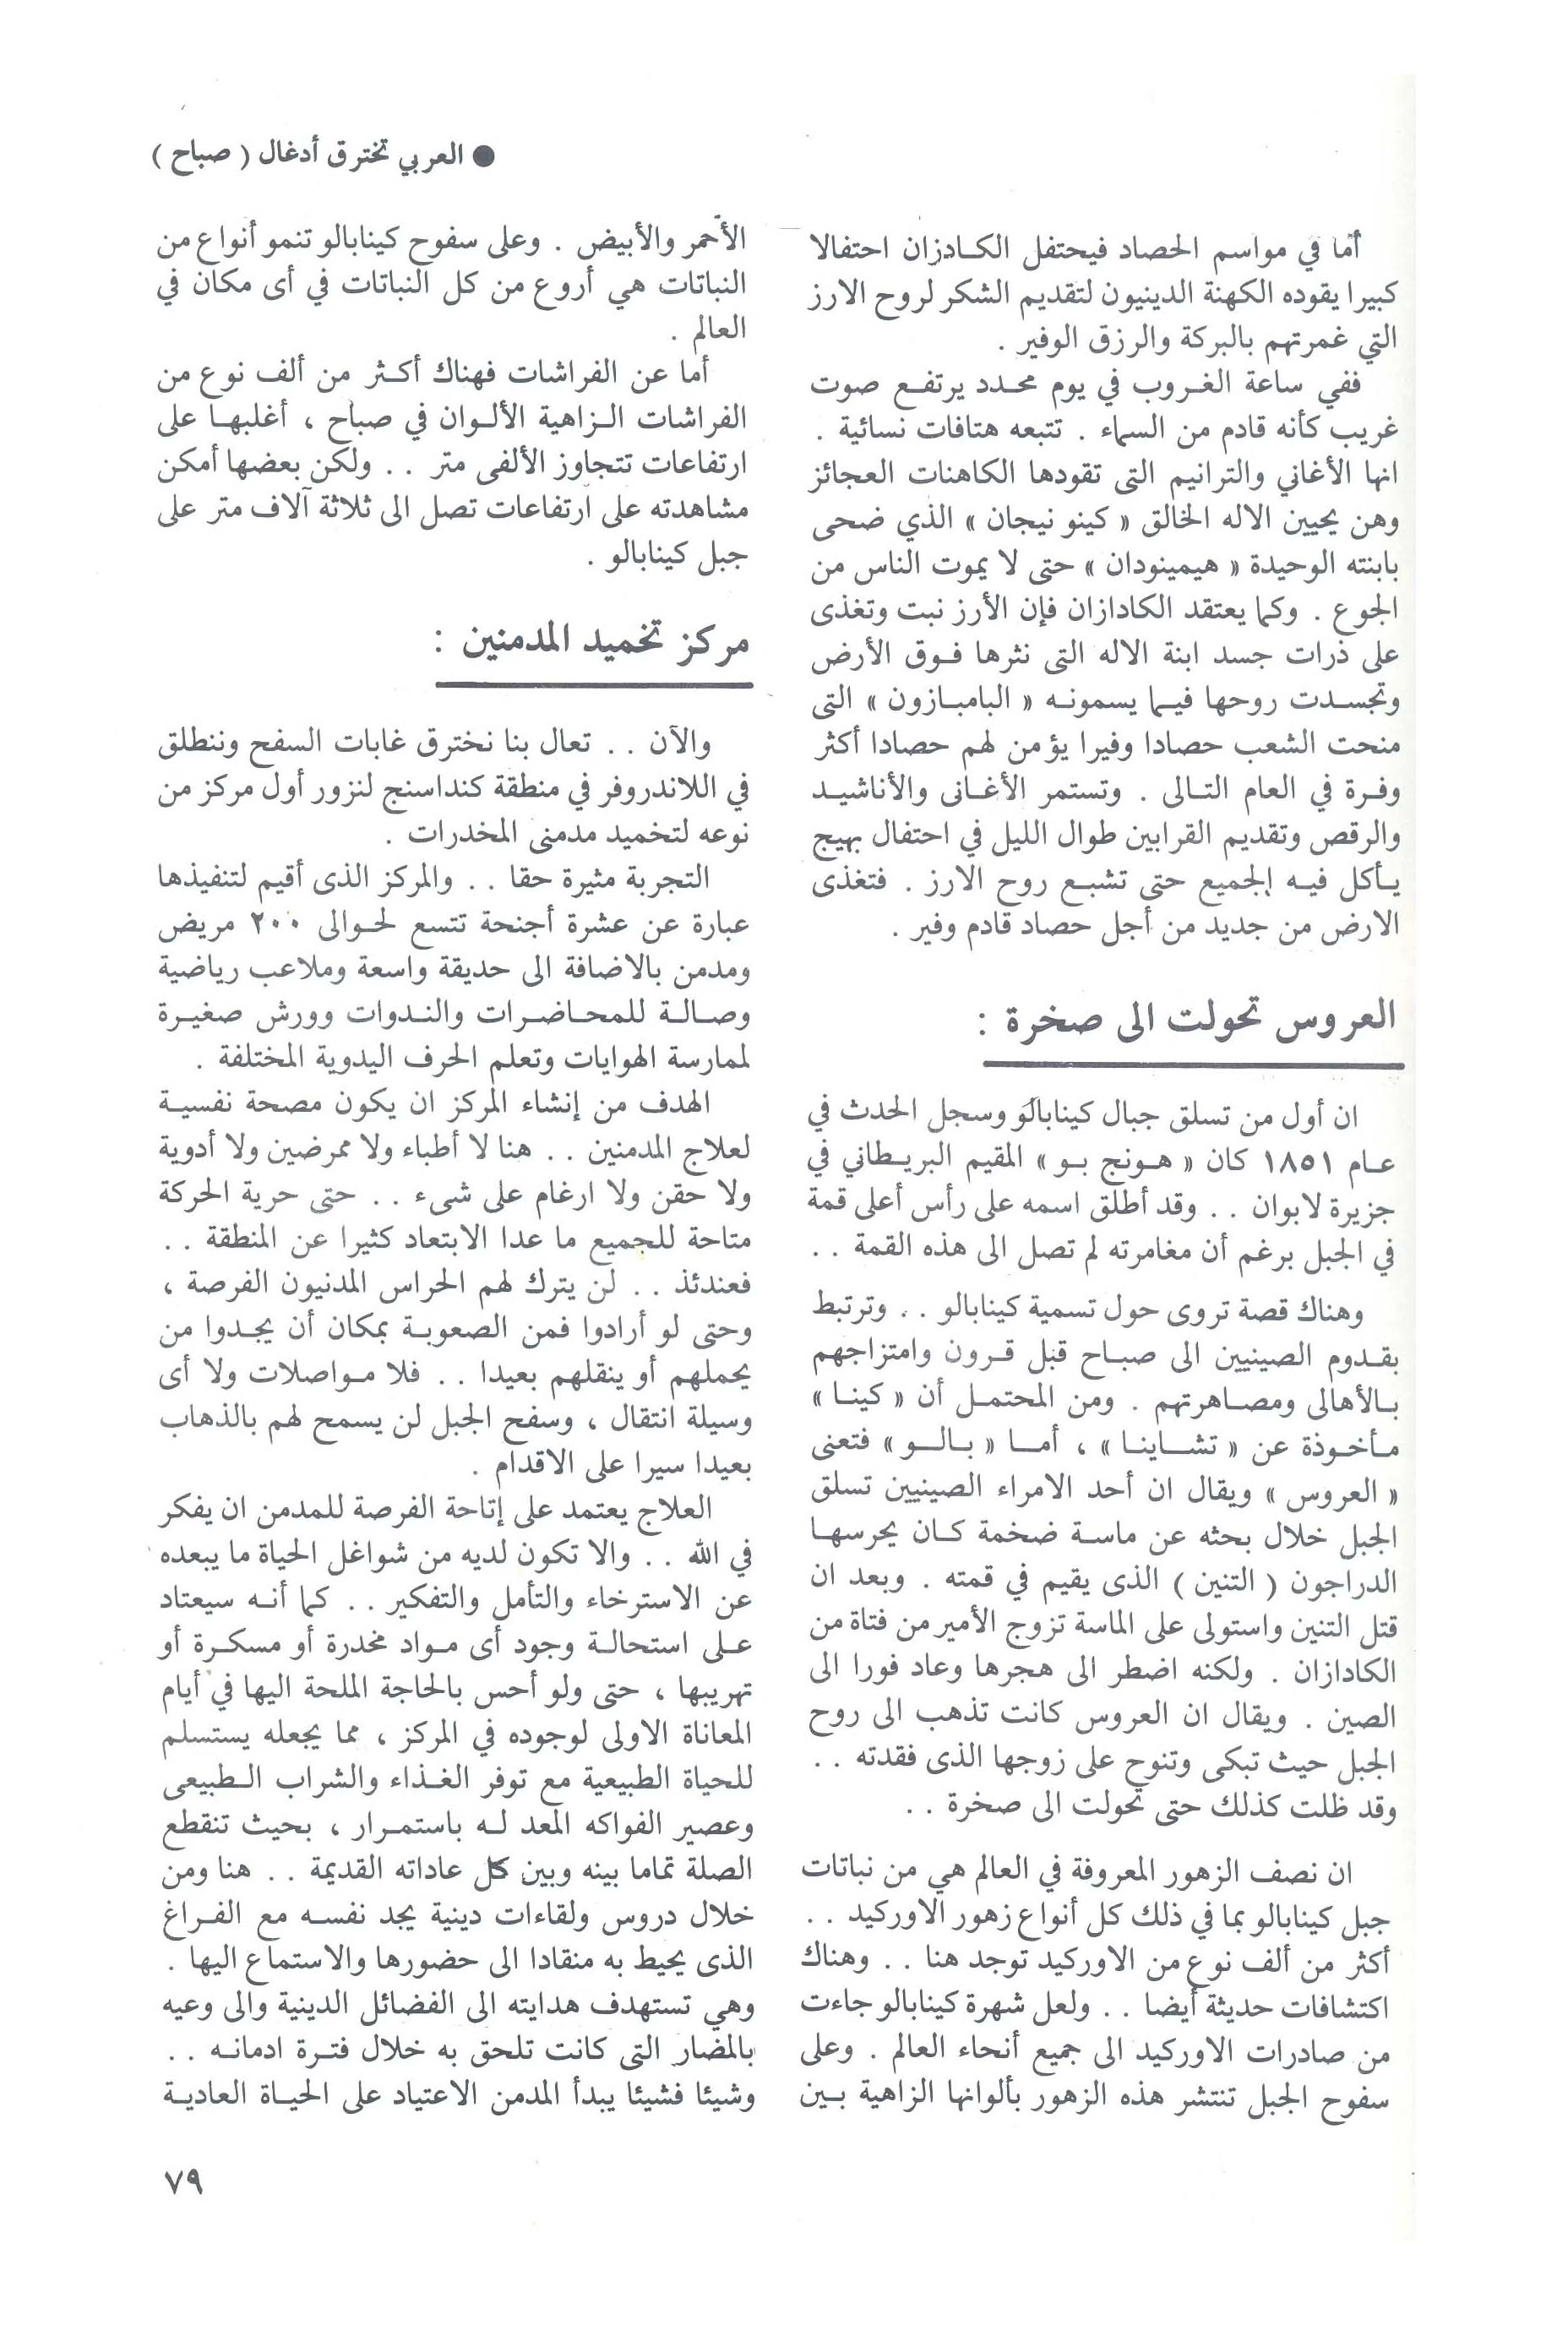 ● العربي تخترق أدغال ( صباح )
أما في مواسم الحصاد فيحتفل الكادزان احتفالا
كبيرا يقوده الكهنة الدينيون لتقديم الشكر لروح الارز
التي غمرتهم بالبركة والرزق الوفير .
ففي ساعة الغروب في يوم محدد يرتفع صوت
غريب كأنه قادم من السماء . تتبعه هتافات نسائية .
انها الأغاني والترانيم التى تقودها الكاهنات العجائز
وهن يحيين الاله الخالق « كينو نيجان » الذي ضحى
بابنته الوحيدة « هيمينودان » حتى لا يموت الناس من
الجوع . وكما يعتقد الكادازان فإن الأرز نبت وتغذى
على ذرات جسد ابنة الاله التى نثرها فوق الأرض
وتجسدت روحها فيما يسمونه « البامبازون » التى
منحت الشعب حصادا وفيرا يؤمن لهم حصادا أكثر
وفرة في العام التالى . وتستمر الأغانى والأناشيد
والرقص وتقديم القرابين طوال الليل في احتفال بهيج
يأكل فيه الجميع حتى تشبع روح الارز . فتغذى
الارض من جديد من أجل حصاد قادم وفير .
العروس تحولت الى صخرة :
ان أول من تسلق جبال كينابالو وسجل الحدث في
عام ١٨٥١ كان « هونج بو » المقيم البريطاني في
جزيرة لابوان . . وقد أطلق اسمه على رأس أعلى قمة
في الجبل برغم أن مغامرته لم تصل الى هذه القمة . .
وهناك قصة تروى حول تسمية كينابالو . . وترتبط
بقدوم الصينيين الى صباح قبل قرون وامتزاجهم
بالأهالى ومصاهرتهم . ومن المحتمل أن « كينا »
مأخوذة عن « تشاينا » ، أما « بالو » فتعنى
« العروس » ويقال ان أحد الامراء الصينيين تسلق
الجبل خلال بحثه عن ماسة ضخمة كان يحرسها
الدراجون ( التنين ) الذى يقيم في قمته . وبعد ان
قتل التنين واستولى على الماسة تزوج الأمير من فتاة من
الكادازان . ولكنه اضطر الى هجرها وعاد فورا الى
الصين . ويقال ان العروس كانت تذهب الى روح
الجبل حيث تبكى وتنوح على زوجها الذى فقدته . .
وقد ظلت كذلك حتى تحولت الى صخرة . .
ان نصف الزهور المعروفة في العالم هي من نباتات
جبل كينابالو بما في ذلك كل أنواع زهور الاوركيد . .
أكثر من ألف نوع من الاوركيد توجد هنا . . وهناك
اكتشافات حديثة أيضا . . ولعل شهرة كينابالو جاءت
من صادرات الاوركيد الى جميع أنحاء العالم . وعلى
سفوح الجبل تنتشر هذه الزهور بألوانها الزاهية بين
الأحمر والأبيض . وعلى سفوح كينابالو تنمو أنواع من
النباتات هي أروع من كل النباتات في أى مكان في
العالم .
أما عن الفراشات فهناك أكثر من ألف نوع من
الفراشات الزاهية الألوان في صباح ، أغلبها على
ارتفاعات تتجاوز الألفى متر . . ولكن بعضها أمكن
مشاهدته على ارتفاعات تصل الى ثلاثة آلاف متر على
جبل كينابالو .
مركز تخميد المدمنين :
والآن . . تعال بنا نخترق غابات السفح وننطلق
في اللاندروفر في منطقة كنداسنج لنزور أول مركز من
نوعه لتخميد مدمنى المخدرات .
التجربة مثيرة حقا . . والمركز الذى أقيم لتنفيذها
عبارة عن عشرة أجنحة تتسع لحوالى ٢٠٠ مريض
ومدمن بالاضافة الى حديقة واسعة وملاعب رياضية
وصالة للمحاضرات والندوات وورش صغيرة
لممارسة الهوايات وتعلم الحرف اليدوية المختلفة .
الهدف من إنشاء المركز ان يكون مصحة نفسية
لعلاج المدمنين . . هنا لا أطباء ولا ممرضين ولا أدوية
ولا حقن ولا ارغام على شىء . . حتى حرية الحركة
متاحة للجميع ما عدا الابتعاد كثيرا عن المنطقة . .
فعندئذ . . لن يترك لهم الحراس المدنيون الفرصة ،
وحتى لو أرادوا فمن الصعوبة بمكان أن يجدوا من
يحملهم أو ينقلهم بعيدا . . فلا مواصلات ولا أى
وسيلة انتقال ، وسفح الجبل لن يسمح لهم بالذهاب
بعيدا سيرا على الاقدام .
العلاج يعتمد على إتاحة الفرصة للمدمن ان يفكر
في الله . . والا تكون لديه من شواغل الحياة ما يبعده
عن الاسترخاء والتأمل والتفكير . . كما أنه سيعتاد
على استحالة وجود أى مواد مخدرة أو مسكرة أو
تهريبها ، حتى ولو أحس بالحاجة الملحة اليها في أيام
المعاناة الاولى لوجوده في المركز ، مما يجعله يستسلم
للحياة الطبيعية مع توفر الغذاء والشراب الطبيعى
وعصير الفواكه المعد له باستمرار ، بحيث تنقطع
الصلة تماما بينه وبين كل عاداته القديمة . . هنا ومن
خلال دروس ولقاءات دينية يجد نفسه مع الفراغ
الذى يحيط به منقادا الى حضورها والاستماع اليها .
وهي تستهدف هدايته الى الفضائل الدينية والى وعيه
بالمضار التى كانت تلحق به خلال فترة ادمانه . .
وشيئا فشيئا يبدأ المدمن الاعتياد على الحياة العادية
٧٩